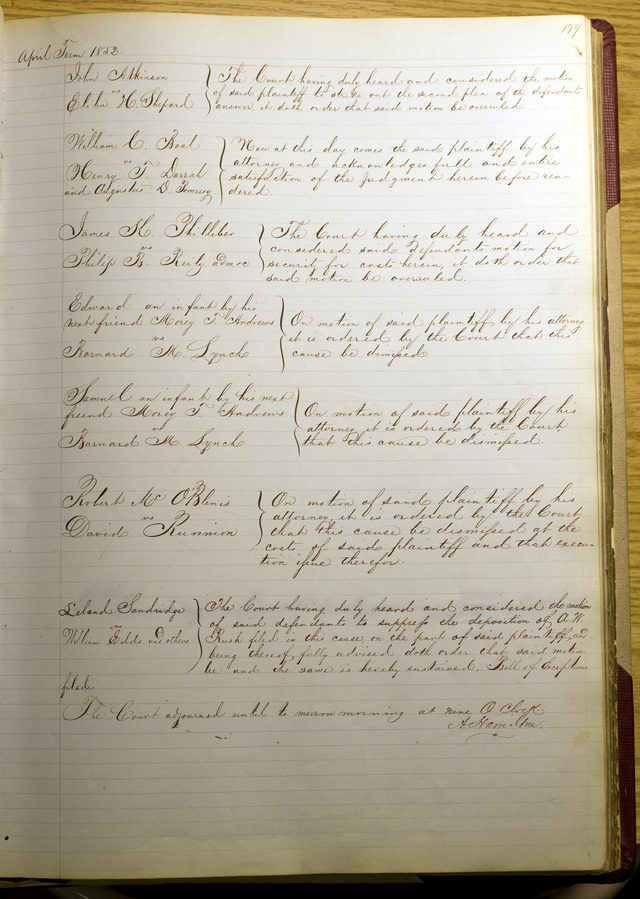 179
April Term 1852.
John Atkinson
vs
Elihu H. Shepard
The Court having duly heard and considered the motion
of said plaintiff to strike out the second plea of the defendants
answer, it doth order that said motion be overruled
William C. Boal
vs
Henry T. Darrah
and Augustus D. Pomeroy
Now at this day comes the said plaintiff by his
attorney and acknowledges full and entire
satisfaction of the Judgment herein before ren-
dered.
James H. Philliber
vs
Philip B. Reily, admor
The Court having duly heard and
considered said Defendants motion for
security for costs herein, it doth order that
said motion be overruled.
Edward an infant by his
next friend Morey T. Andrews
vs
Barnard M. Lynch
On motion of said plaintiff by his attorney
it is ordered by the Court that this
cause be dismissed
Samuel an infant by his next
friend Morey T. Andrews
vs
Barnard M. Lynch
On motion of said plaintiff by his
attorney it is ordered by the Court
that this cause be dismissed
Robert Mc O'Blenis
vs
David Runnion
On motion of said plaintiff by his
attorney it is ordered by the Court
that this cause be dismissed at the
costs of said plaintiff and that execu-
tion issue therefor.
Leland Sandridge
vs
William Edd and others
The Court having duly heard and considered the motion
of said defendants to suppress the deposition of A. W.
Rush filed in this cause on the part of said plaintiff, and
being thereof fully advised doth order that said motion
be and the same is hereby sustained. Bill of Exceptions
filed
The Court adjourned until to morrow morning at nine O'Clock
A. Hamilton.